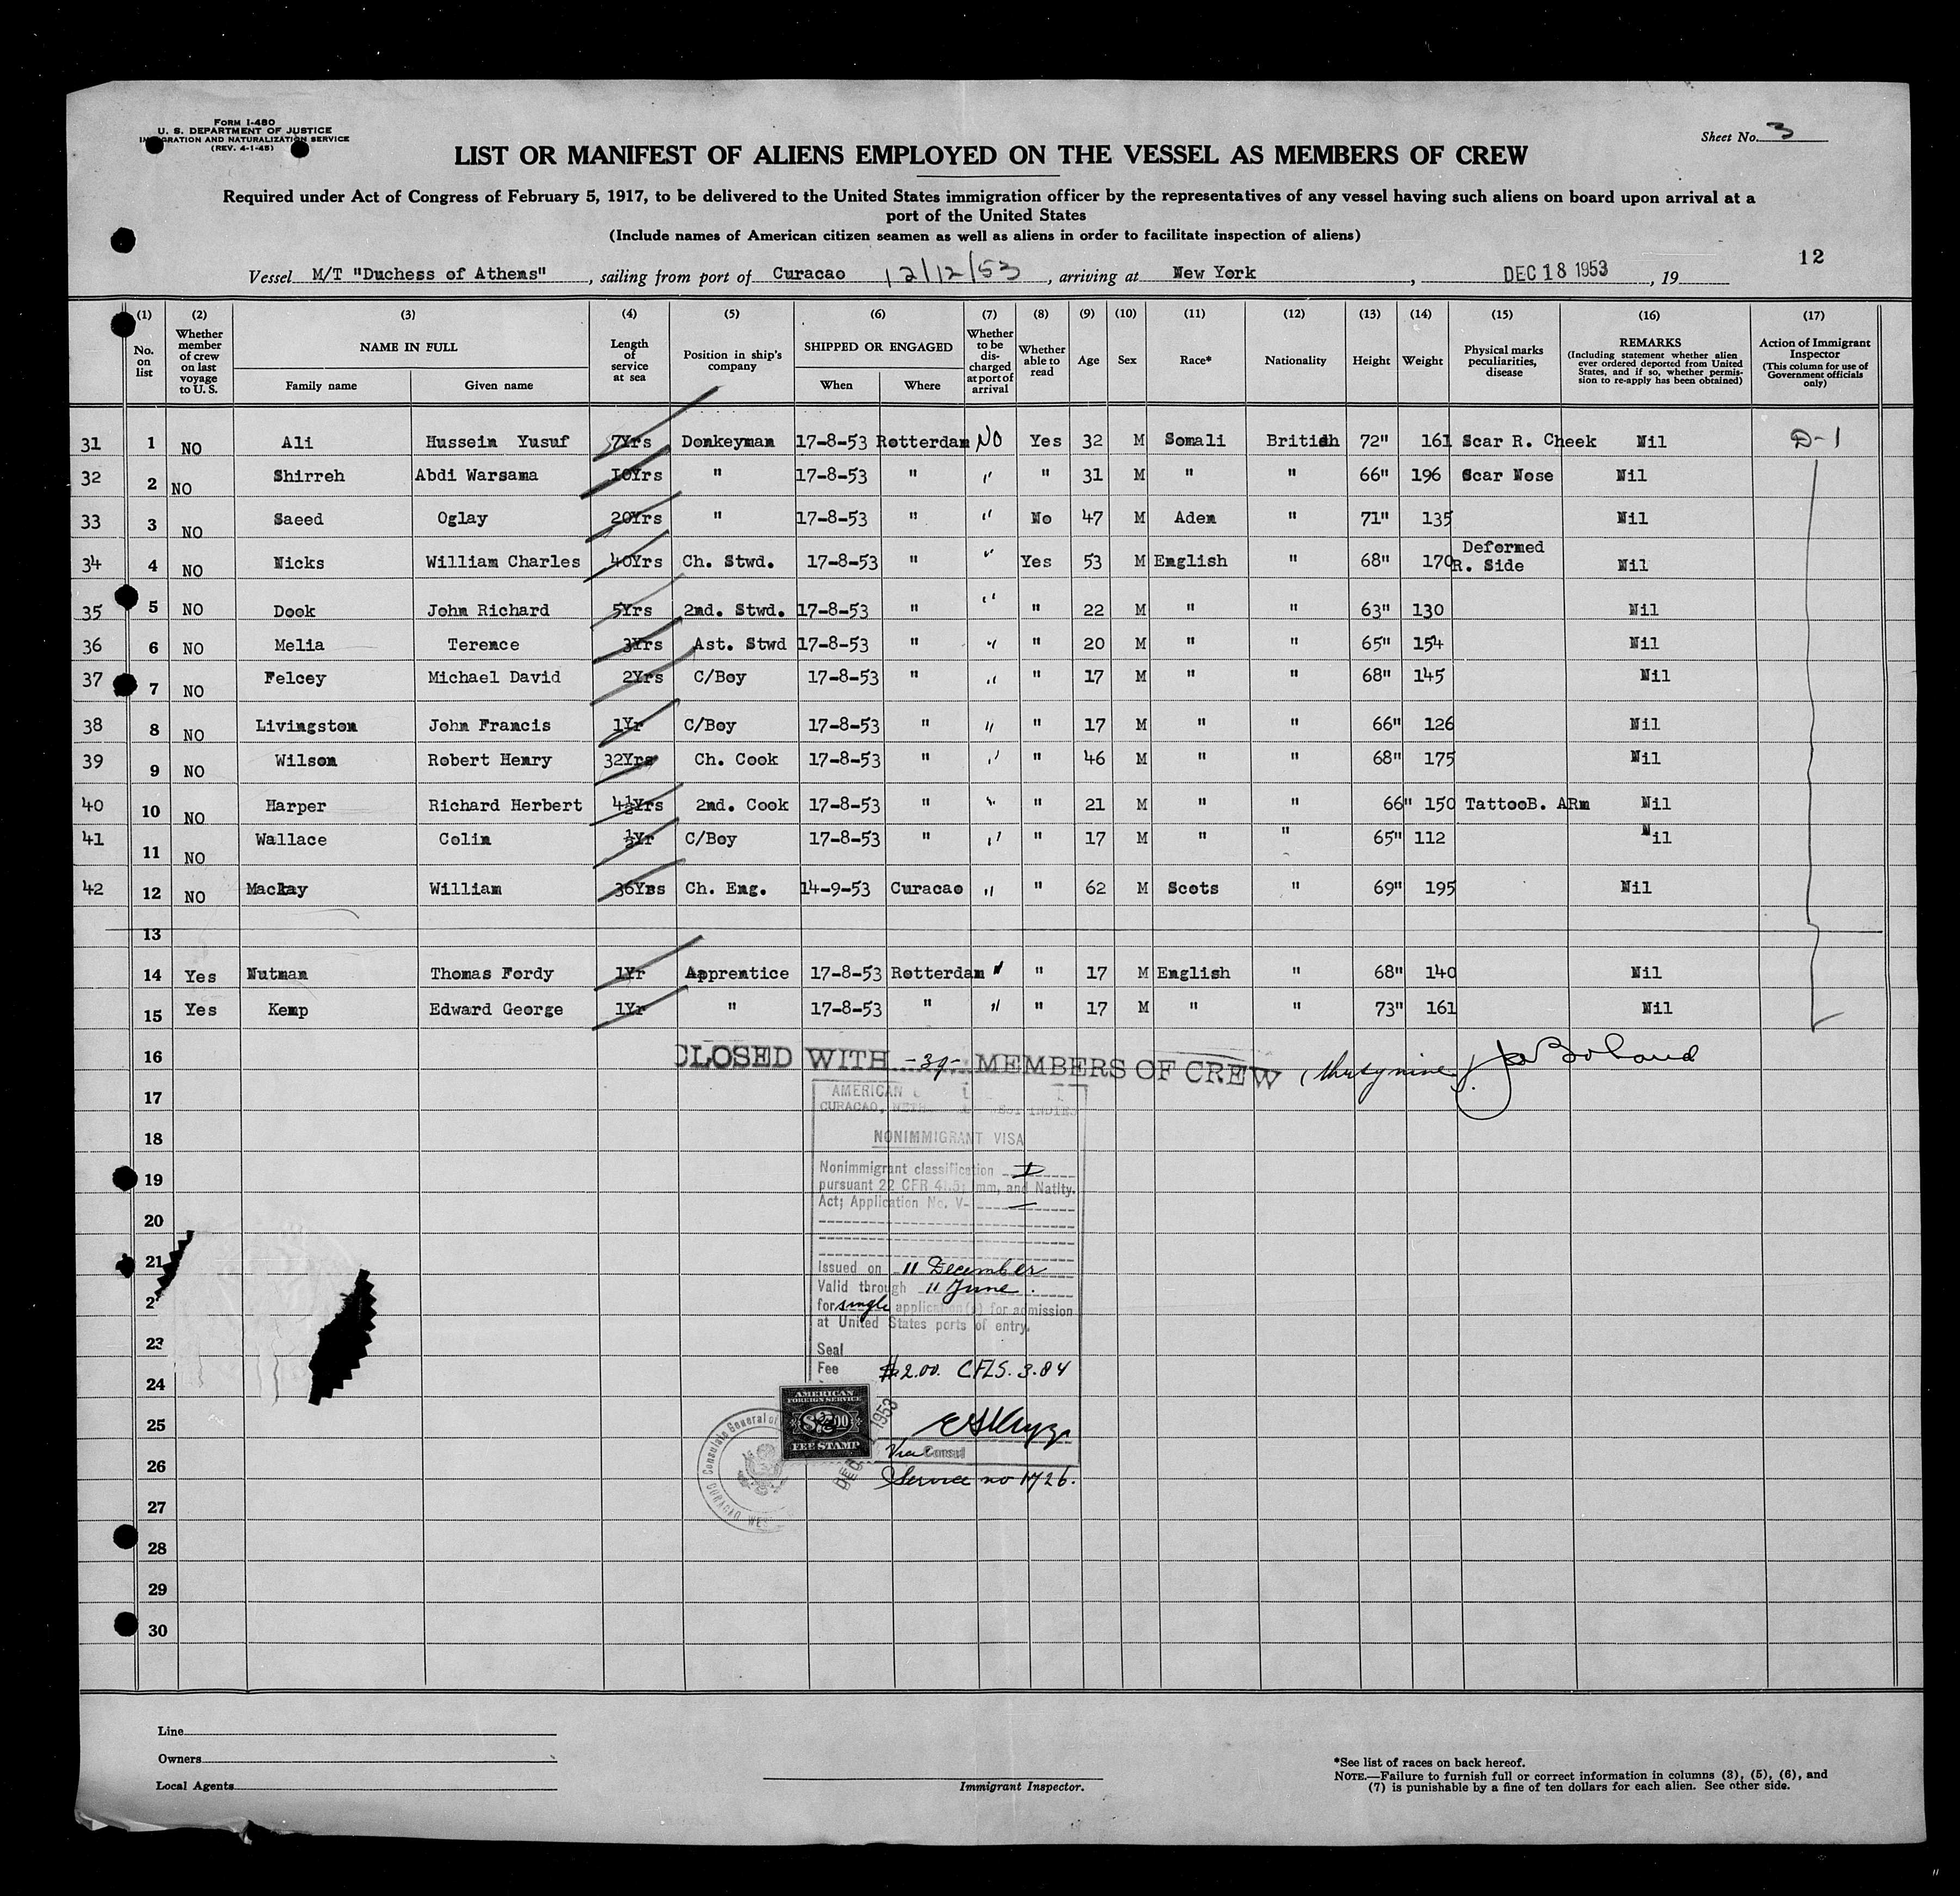 FORM I-480
U. S. DEPARTMENT OF JUSTICE
IMMIGRATION AND NATURALIZATION SERVICE
(REV. 4-1-45)
Sheet No. 3
LIST OR MANIFEST OF ALIENS EMPLOYED ON THE VESSEL AS MEMBERS OF CREW
Required under Act of Congress of February 5, 1917, to be delivered to the United States immigration officer by the representatives of any vessel having such aliens on board upon arrival at a
port of the United States
(Include names of American citizen seamen as well as aliens in order to facilitate inspection of aliens)
12
Vessel M/T "Duchess of Athens", sailing from port of Curacao 12/12/53, arriving at New York, DEC 18 1953, 19
(1) (2) (3) (4) (5) (6) (7) (8) (9) (10) (11) (12) (13) (14) (15) (16) (17)
No. on list Whether member of crew on last voyage to U. S. NAME IN FULL Family name Given name Length of service at sea Position in ship's company SHIPPED OR ENGAGED When Where Whether to be discharged at port of arrival Whether able to read Age Sex Race* Nationality Height Weight Physical marks peculiarities, disease REMARKS (Including statement whether alien ever ordered deported from United States, and if so, whether permission to re-apply has been obtained) Action of Immigrant Inspector (This column for use of Government officials only)
31 1 NO Ali Hussein Yusuf 7Yrs Donkeyman 17-8-53 Rotterdam NO Yes 32 M Somali British 72" 161 Scar R. Cheek Nil D-1
32 2 NO Shirreh Abdi Warsama 10Yrs " 17-8-53 " " " 31 M " " 66" 196 Scar Nose Nil
33 3 NO Saeed Oglay 20Yrs " 17-8-53 " " No 47 M Aden " 71" 135 Nil
34 4 NO Nicks William Charles 40Yrs Ch. Stwd. 17-8-53 " " Yes 53 M English " 68" 170 Deformed R. Side Nil
35 5 NO Dook John Richard 5Yrs 2nd. Stwd. 17-8-53 " " " 22 M " " 63" 130 Nil
36 6 NO Melia Terence 3Yrs Ast. Stwd 17-8-53 " " " 20 M " " 65" 154 Nil
37 7 NO Felcey Michael David 2Yrs C/Boy 17-8-53 " " " 17 M " " 68" 145 Nil
38 8 NO Livingston John Francis 1Yr C/Boy 17-8-53 " " " 17 M " " 66" 126 Nil
39 9 NO Wilson Robert Henry 32Yrs Ch. Cook 17-8-53 " " " 46 M " " 68" 175 Nil
40 10 NO Harper Richard Herbert 4½Yrs 2nd. Cook 17-8-53 " " " 21 M " " 66" 150 TattooB. ARm Nil
41 11 NO Wallace Colin ½Yr C/Boy 17-8-53 " " " 17 M " " 65" 112 Nil
42 12 NO Mackay William 36Yrs Ch. Eng. 14-9-53 Curacao " " 62 M Scots " 69" 195 Nil
13
14 Yes Nutman Thomas Fordy 1Yr Apprentice 17-8-53 Rotterdam " " 17 M English " 68" 140 Nil
15 Yes Kemp Edward George 1Yr " 17-8-53 " " " 17 M " " 73" 161 Nil
16 CLOSED WITH -39- MEMBERS OF CREW (thirty nine)
17 AMERICAN
CURACAO, WEST INDIES
18 NONIMMIGRANT VISA
19 Nonimmigrant classification
pursuant 22 CFR 41.5; Imm. and Natlty.
Act; Application No. V-
20
21 Issued on 11 December
2 Valid through 11 June.
for single application(s) for admission
at United States ports of entry.
23 Seal
24 Fee $2.00. CFLS. 3.84
AMERICAN
FOREIGN SERVICE
$2.00
FEE STAMP
25
Vice Consul
26 Service no 1726.
Consulate General of
CURACAO WES
DEC 1953
27
28
29
30
Line
Owners
Local Agents
Immigrant Inspector.
*See list of races on back hereof.
NOTE.—Failure to furnish full or correct information in columns (3), (5), (6), and
(7) is punishable by a fine of ten dollars for each alien. See other side.